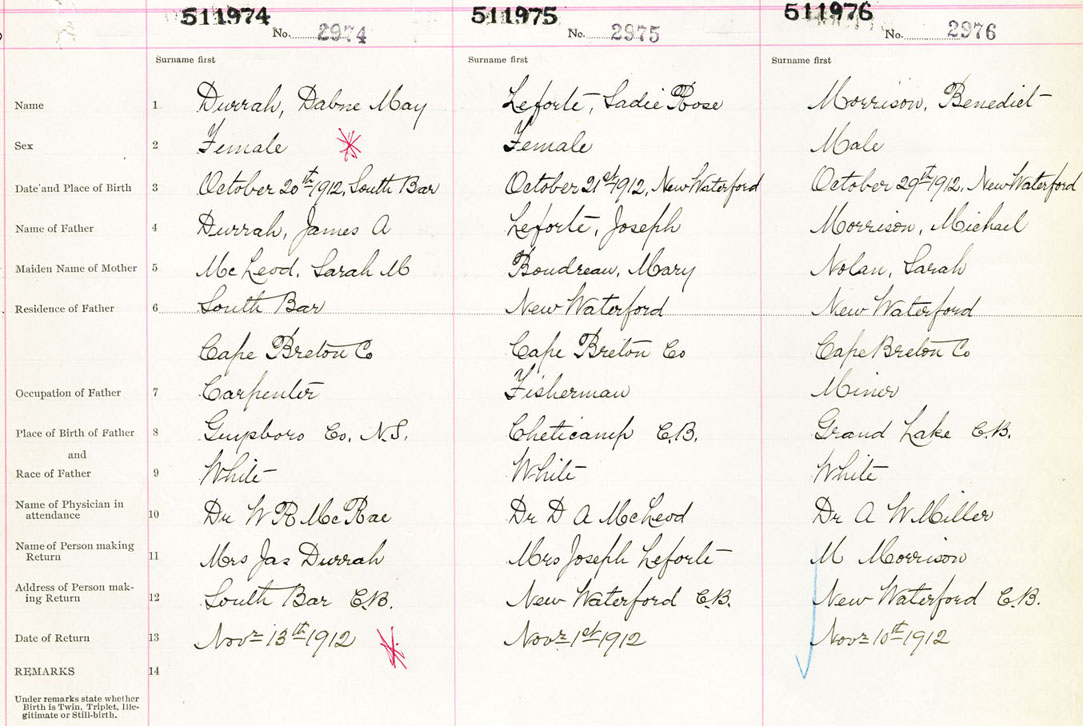 511974 511975 511976
No. 2974 No. 2975 No. 2976
Surname first Surname first Surname first
Name 1 Durrah, Dabne May Leforte, Sadie Rose Morrison, Benedict
Sex 2 Female Female Male
Date and Place of Birth 3 October 20th 1912, South Bar October 21st 1912, New Waterford October 29th 1912, New Waterford
Name of Father 4 Durrah, James A Leforte, Joseph Morrison, Michael
Maiden Name of Mother 5 McLeod, Sarah M Boudreau, Mary Nolan, Sarah
Residence of Father 6 South Bar New Waterford New Waterford
Cape Breton Co Cape Breton Co Cape Breton Co
Occupation of Father 7 Carpenter Fisherman Miner
Place of Birth of Father 8 Guysboro Co. N.S. Cheticamp C.B. Grand Lake C.B.
and
Race of Father 9 White White White
Name of Physician in
attendance 10 Dr W R McRae Dr D A McLeod Dr A W Miller
Name of Person making
Return 11 Mrs Jas Durrah Mrs Joseph Leforte M Morrison
Address of Person mak-
ing Return 12 South Bar C.B. New Waterford C.B. New Waterford C.B.
Date of Return 13 Novr 13th 1912 Novr 1st 1912 Novr 10th 1912
REMARKS 14
Under remarks state whether
Birth is Twin, Triplet, Ille-
gitimate or Still-birth.